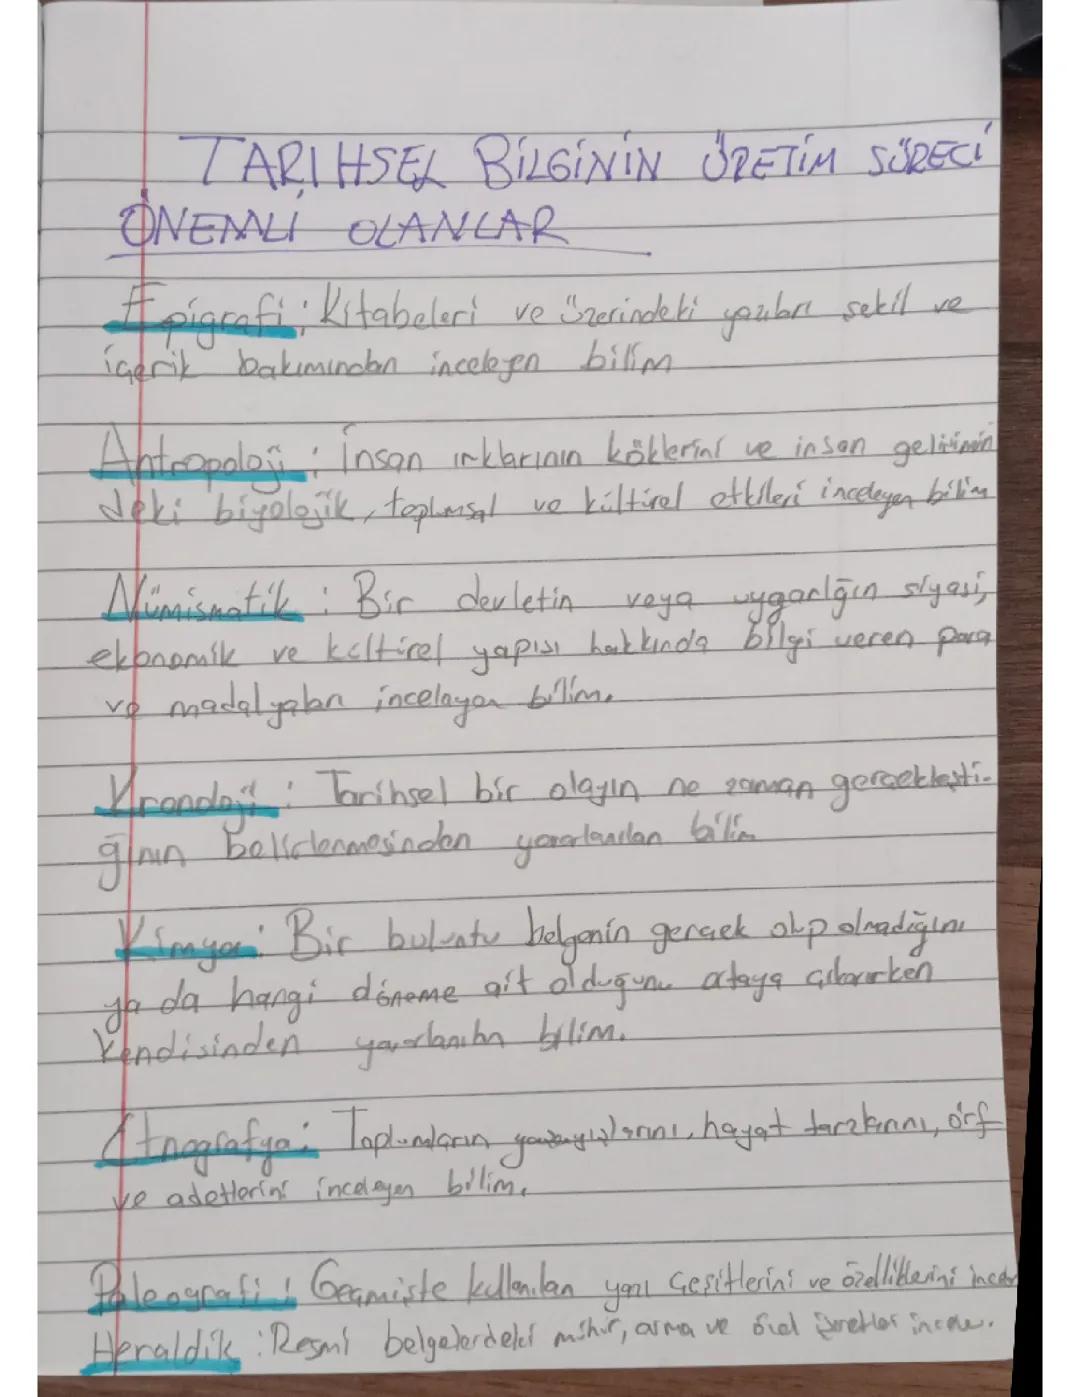 TARIHSEL BİLGİNİN ÜRETİM SÜRECİ
ÖNEMLİ OLANLAR
Epigrafi: Kitabeleri ve üzerindeki yazıları sekil ve
içerik bakımından inceleyen bilim
Antropoloji: İnsan ırklarının köklerini ve insan gelişimin
deki biyolojik, toplumsal ve kültürel etkileri inceleyen bilim
Nümismatik: Bir devletin veya uygarlığın siyasi,
ekonomik ve kültürel yapısı hakkında bilgi veren para
ve madalyaları inceleyen bilim.
Kronoloji: Tarihsel bir olayın ne zaman gerçekleşti-
ğinin belirlenmesinden yararlanılan bilim
Kimya: Bir buluntu belgenin gerçek olup olmadığını
ya da hangi döneme ait olduğunu ortaya çıkarırken
kendisinden yararlanılan bilim.
Etnografya: Toplumların hayat tarzlarını, örf
ve adetlerini inceleyen bilim.
Paleografi: Geçmişte kullanılan yazı çeşitlerini ve özelliklerini inceler
Heraldik: Resmi belgelerdeki mühür, arma ve özel işaretler inceler.